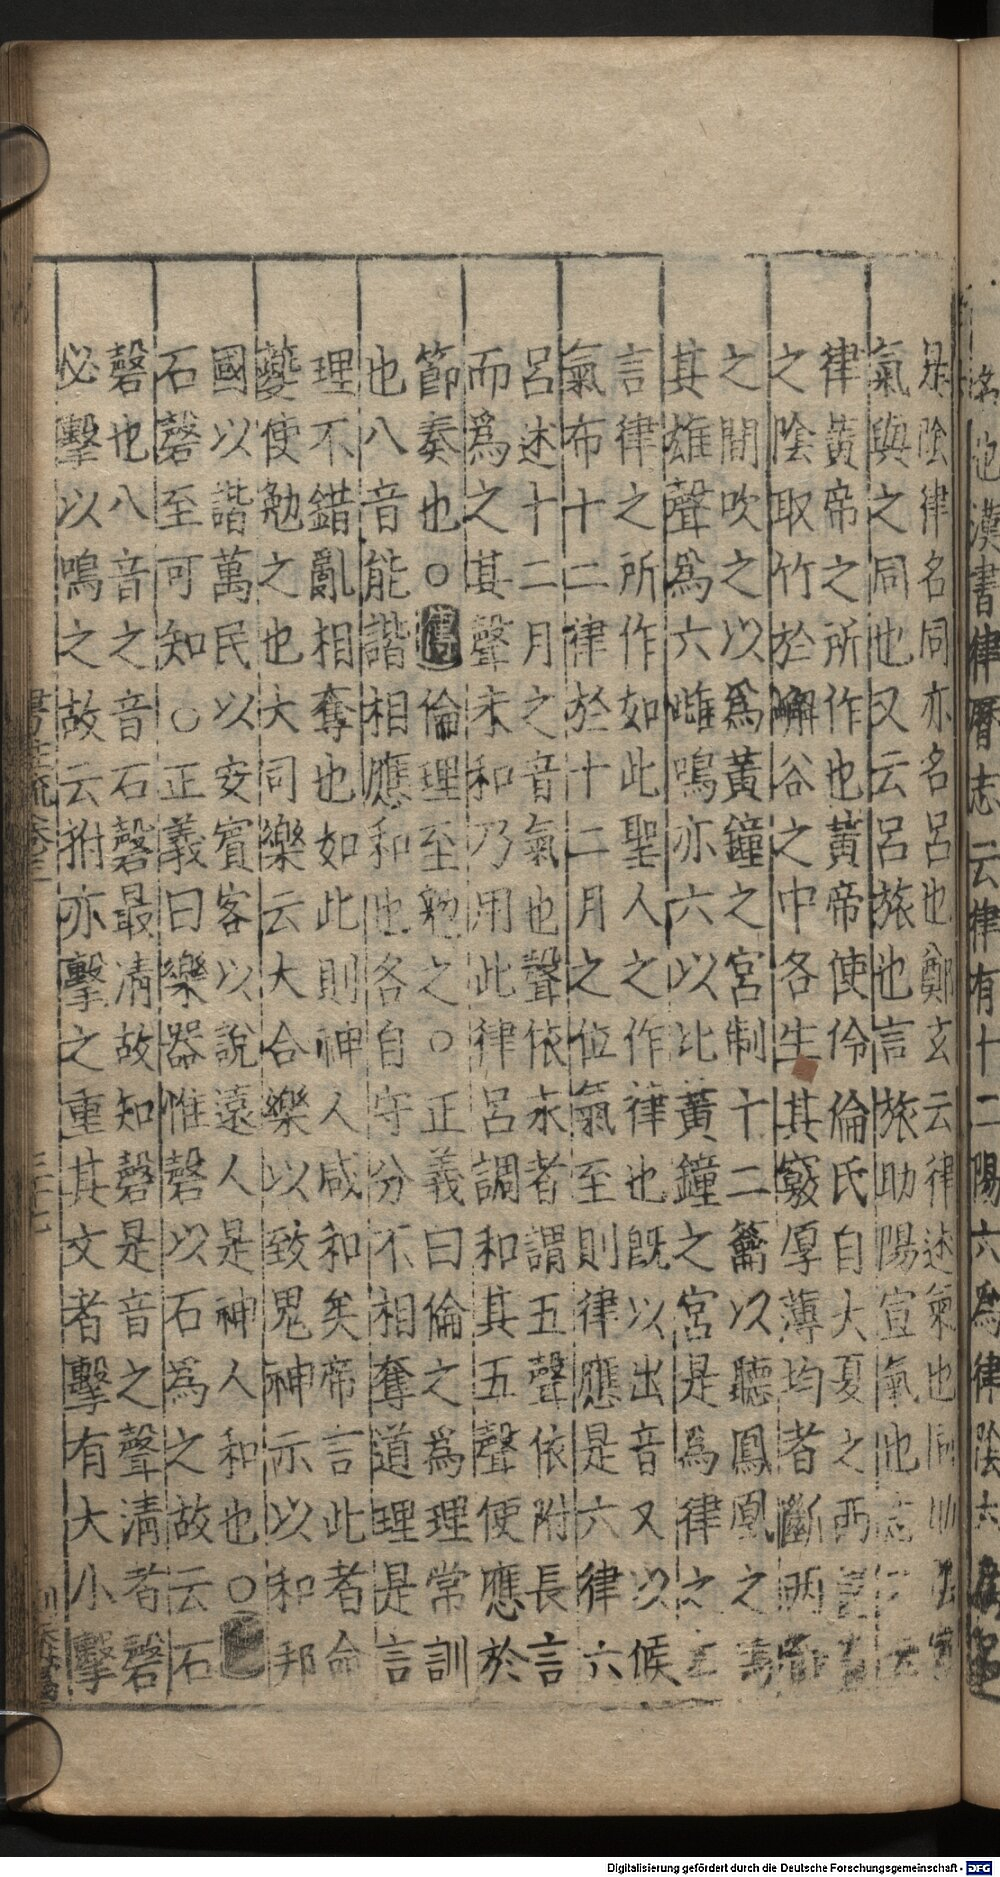 漢書律曆志云律有十二陽六爲律陰六
是陰律名同亦名呂也鄭玄云律述氣也同
氣與之同也又云呂旅也言旅助陽宣氣也
律黃帝之所作也黃帝使伶倫氏自大夏之西
之陰取竹於嶰谷之中各生其竅厚薄均者斷兩
之間吹之以爲黃鐘之宮制十二籥以聽鳳凰之
其雄聲爲六雌鳴亦六以比黃鐘之宮是爲律之
言律之所作如此聖人之作律也旣以出音又以候
氣布十二律於十二月之位氣至則律應是六律六
呂述十二月之音氣也聲依永者謂五聲依附長言
而爲之其聲未和乃用此律呂調和其五聲使應於
節奏也○傳倫理至勉之○正義曰倫之爲理常訓
也八音能諧相應和也各自守分不相奪道理是言
理不錯亂相奪也如此則神人咸和矣帝言此者命
夔使勉之也大司樂云大合樂以致鬼神示以和邦
國以諧萬民以安賓客以說遠人是神人和也○
石磬至可知○正義曰樂器惟磬以石爲之故云石
磬也八音之音石磬最清故知磬是音之聲清者磬
必擊以鳴之故云拊亦擊之重其文者擊有大小擊
Digitalisierung gefördert durch die Deutsche Forschungsgemeinschaft - DFG